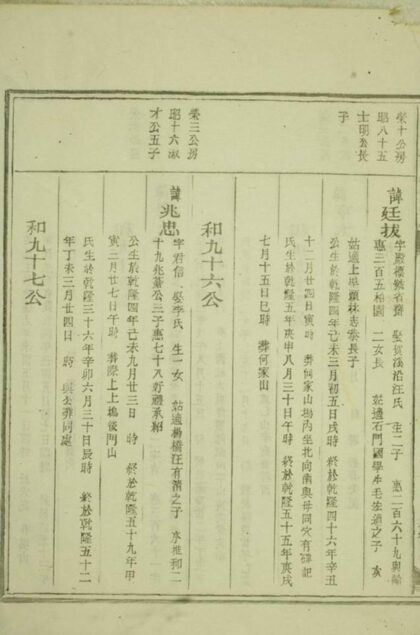 榮十公房
昭八十五
士明公長
子
諱廷拔
字殿標號省齋 娶賀溪沿汪氏 生二子 惠二百六十九與齡
惠三百五柏園 二女長 姑適石門國學生毛佐清之子 次
姑適上界頭林志泰長子
公生於乾隆四年己未三月初五日戌時 終於乾隆四十六年辛丑
十二月廿四日寅時 葬何家山塢內坐北向南與母同穴有碑記
氏生於乾隆五年庚申八月三十日午時 終於乾隆五十五年庚戌
七月十五日巳時 葬何家山
和九十六公
榮三公房
昭十六淑
才公五子
諱兆忠
字君信 娶李氏 生一女 姑適楊橋汪有清之子 承雅和二
十九兆嘉公三子惠七十八新疆承紹
公生於乾隆四年己未九月廿三日 時 終於乾隆五十九年甲
寅二月廿七日午時 葬際上上塢後門山
氏生於乾隆三十六年辛卯六月三十日辰時 終於乾隆五十二
年丁未三月廿四日 時 與公葬同處
和九十七公